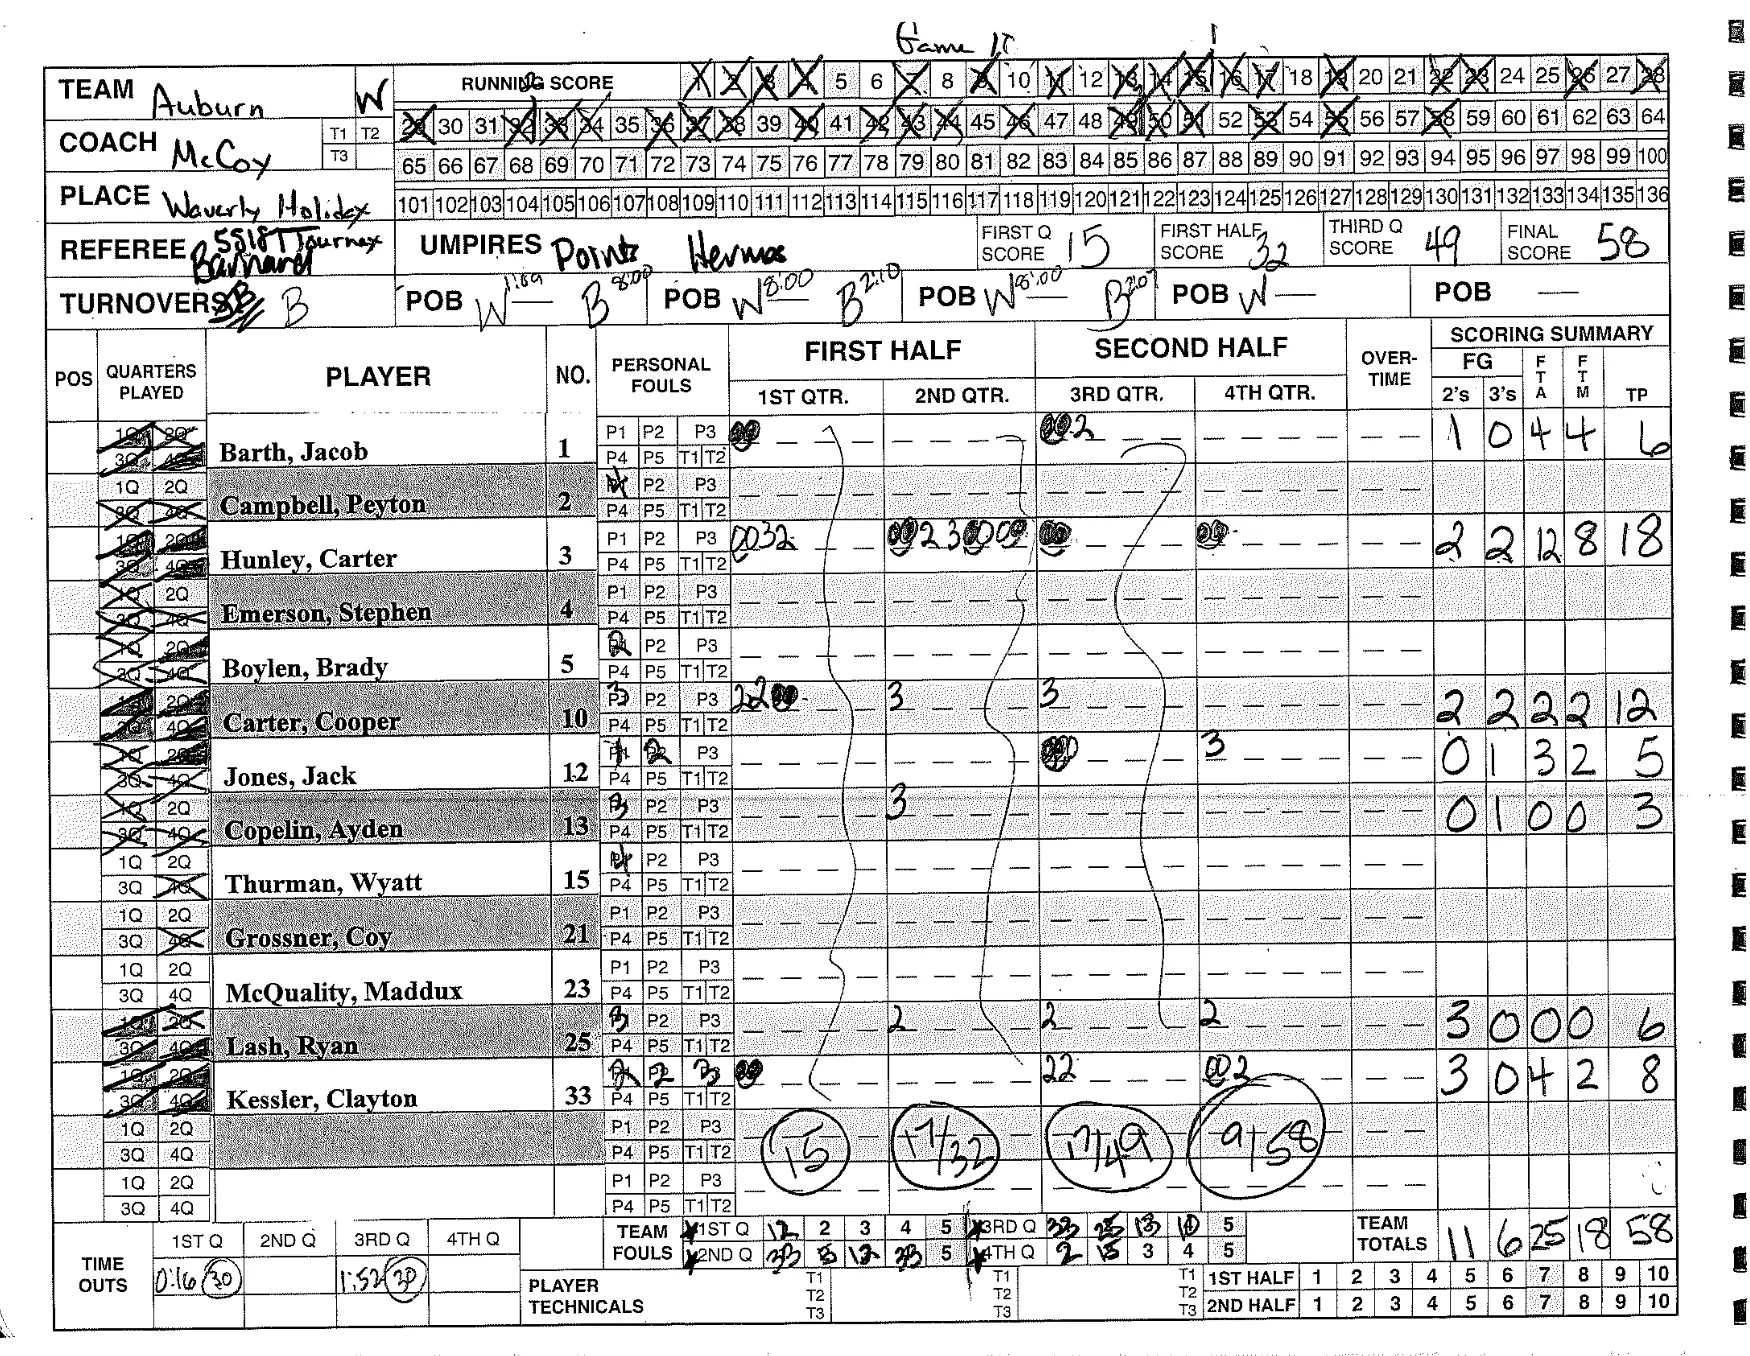 Game 15
TEAM Auburn W RUNNING SCORE 1 2 3 4 5 6 7 8 9 10 11 12 13 14 15 16 17 18 19 20 21 22 23 24 25 26 27 28
29 30 31 32 33 34 35 36 37 38 39 40 41 42 43 44 45 46 47 48 49 50 51 52 53 54 55 56 57 58 59 60 61 62 63 64
COACH McCoy T1 T2 T3 65 66 67 68 69 70 71 72 73 74 75 76 77 78 79 80 81 82 83 84 85 86 87 88 89 90 91 92 93 94 95 96 97 98 99 100
PLACE Waverly Holiday 101 102 103 104 105 106 107 108 109 110 111 112 113 114 115 116 117 118 119 120 121 122 123 124 125 126 127 128 129 130 131 132 133 134 135 136
REFEREE 5518 T Tourney Barnard UMPIRES Pointe Hermes FIRST Q SCORE 15 FIRST HALF SCORE 32 THIRD Q SCORE 49 FINAL SCORE 58
TURNOVERS B POB W 1:59 B 8:00 POB W 8:00 B 2:10 POB W 8:00 B 2:07 POB W — POB —
POS QUARTERS PLAYED PLAYER NO. PERSONAL FOULS FIRST HALF SECOND HALF OVER-TIME SCORING SUMMARY
1ST QTR. 2ND QTR. 3RD QTR. 4TH QTR. FG 2's 3's FTA FTM TP
1Q 2Q 3Q 4Q Barth, Jacob 1 P1 P2 P3 P4 P5 T1 T2 00 002 1 0 4 4 6
1Q 2Q 3Q 4Q Campbell, Peyton 2 P2 P3 P4 P5 T1 T2
1Q 2Q 3Q 4Q Hunley, Carter 3 P1 P2 P3 P4 P5 T1 T2 0032 00230000 00 00 2 2 12 8 18
1Q 2Q 3Q 4Q Emerson, Stephen 4 P1 P2 P3 P4 P5 T1 T2
1Q 2Q 3Q 4Q Boylen, Brady 5 2 P2 P3 P4 P5 T1 T2
1Q 2Q 3Q 4Q Carter, Cooper 10 3 P2 P3 P4 P5 T1 T2 2200 3 3 2 2 2 2 12
1Q 2Q 3Q 4Q Jones, Jack 12 1 2 P3 P4 P5 T1 T2 000 3 0 1 3 2 5
1Q 2Q 3Q 4Q Copelin, Ayden 13 3 P2 P3 P4 P5 T1 T2 3 0 1 0 0 3
1Q 2Q 3Q 4Q Thurman, Wyatt 15 4 P2 P3 P4 P5 T1 T2
1Q 2Q 3Q 4Q Grossner, Coy 21 P1 P2 P3 P4 P5 T1 T2
1Q 2Q 3Q 4Q McQuality, Maddux 23 P1 P2 P3 P4 P5 T1 T2
1Q 2Q 3Q 4Q Lash, Ryan 25 3 P2 P3 P4 P5 T1 T2 2 2 2 3 0 0 0 6
1Q 2Q 3Q 4Q Kessler, Clayton 33 2 2 3 P4 P5 T1 T2 00 22 002 3 0 4 2 8
1Q 2Q 3Q 4Q P1 P2 P3 P4 P5 T1 T2 15 17/32 17/49 9/58
1Q 2Q 3Q 4Q P1 P2 P3 P4 P5 T1 T2
TIME OUTS 1ST Q 2ND Q 3RD Q 4TH Q
0:16 30 1:52 30
TEAM FOULS 1ST Q 12 2 3 4 5 3RD Q 33 25 13 10 5 TEAM TOTALS 11 6 25 18 58
2ND Q 33 5 12 33 5 4TH Q 2 15 3 4 5
PLAYER TECHNICALS T1 T2 T3 T1 T2 T3 T1 T2 T3
1ST HALF 1 2 3 4 5 6 7 8 9 10
2ND HALF 1 2 3 4 5 6 7 8 9 10